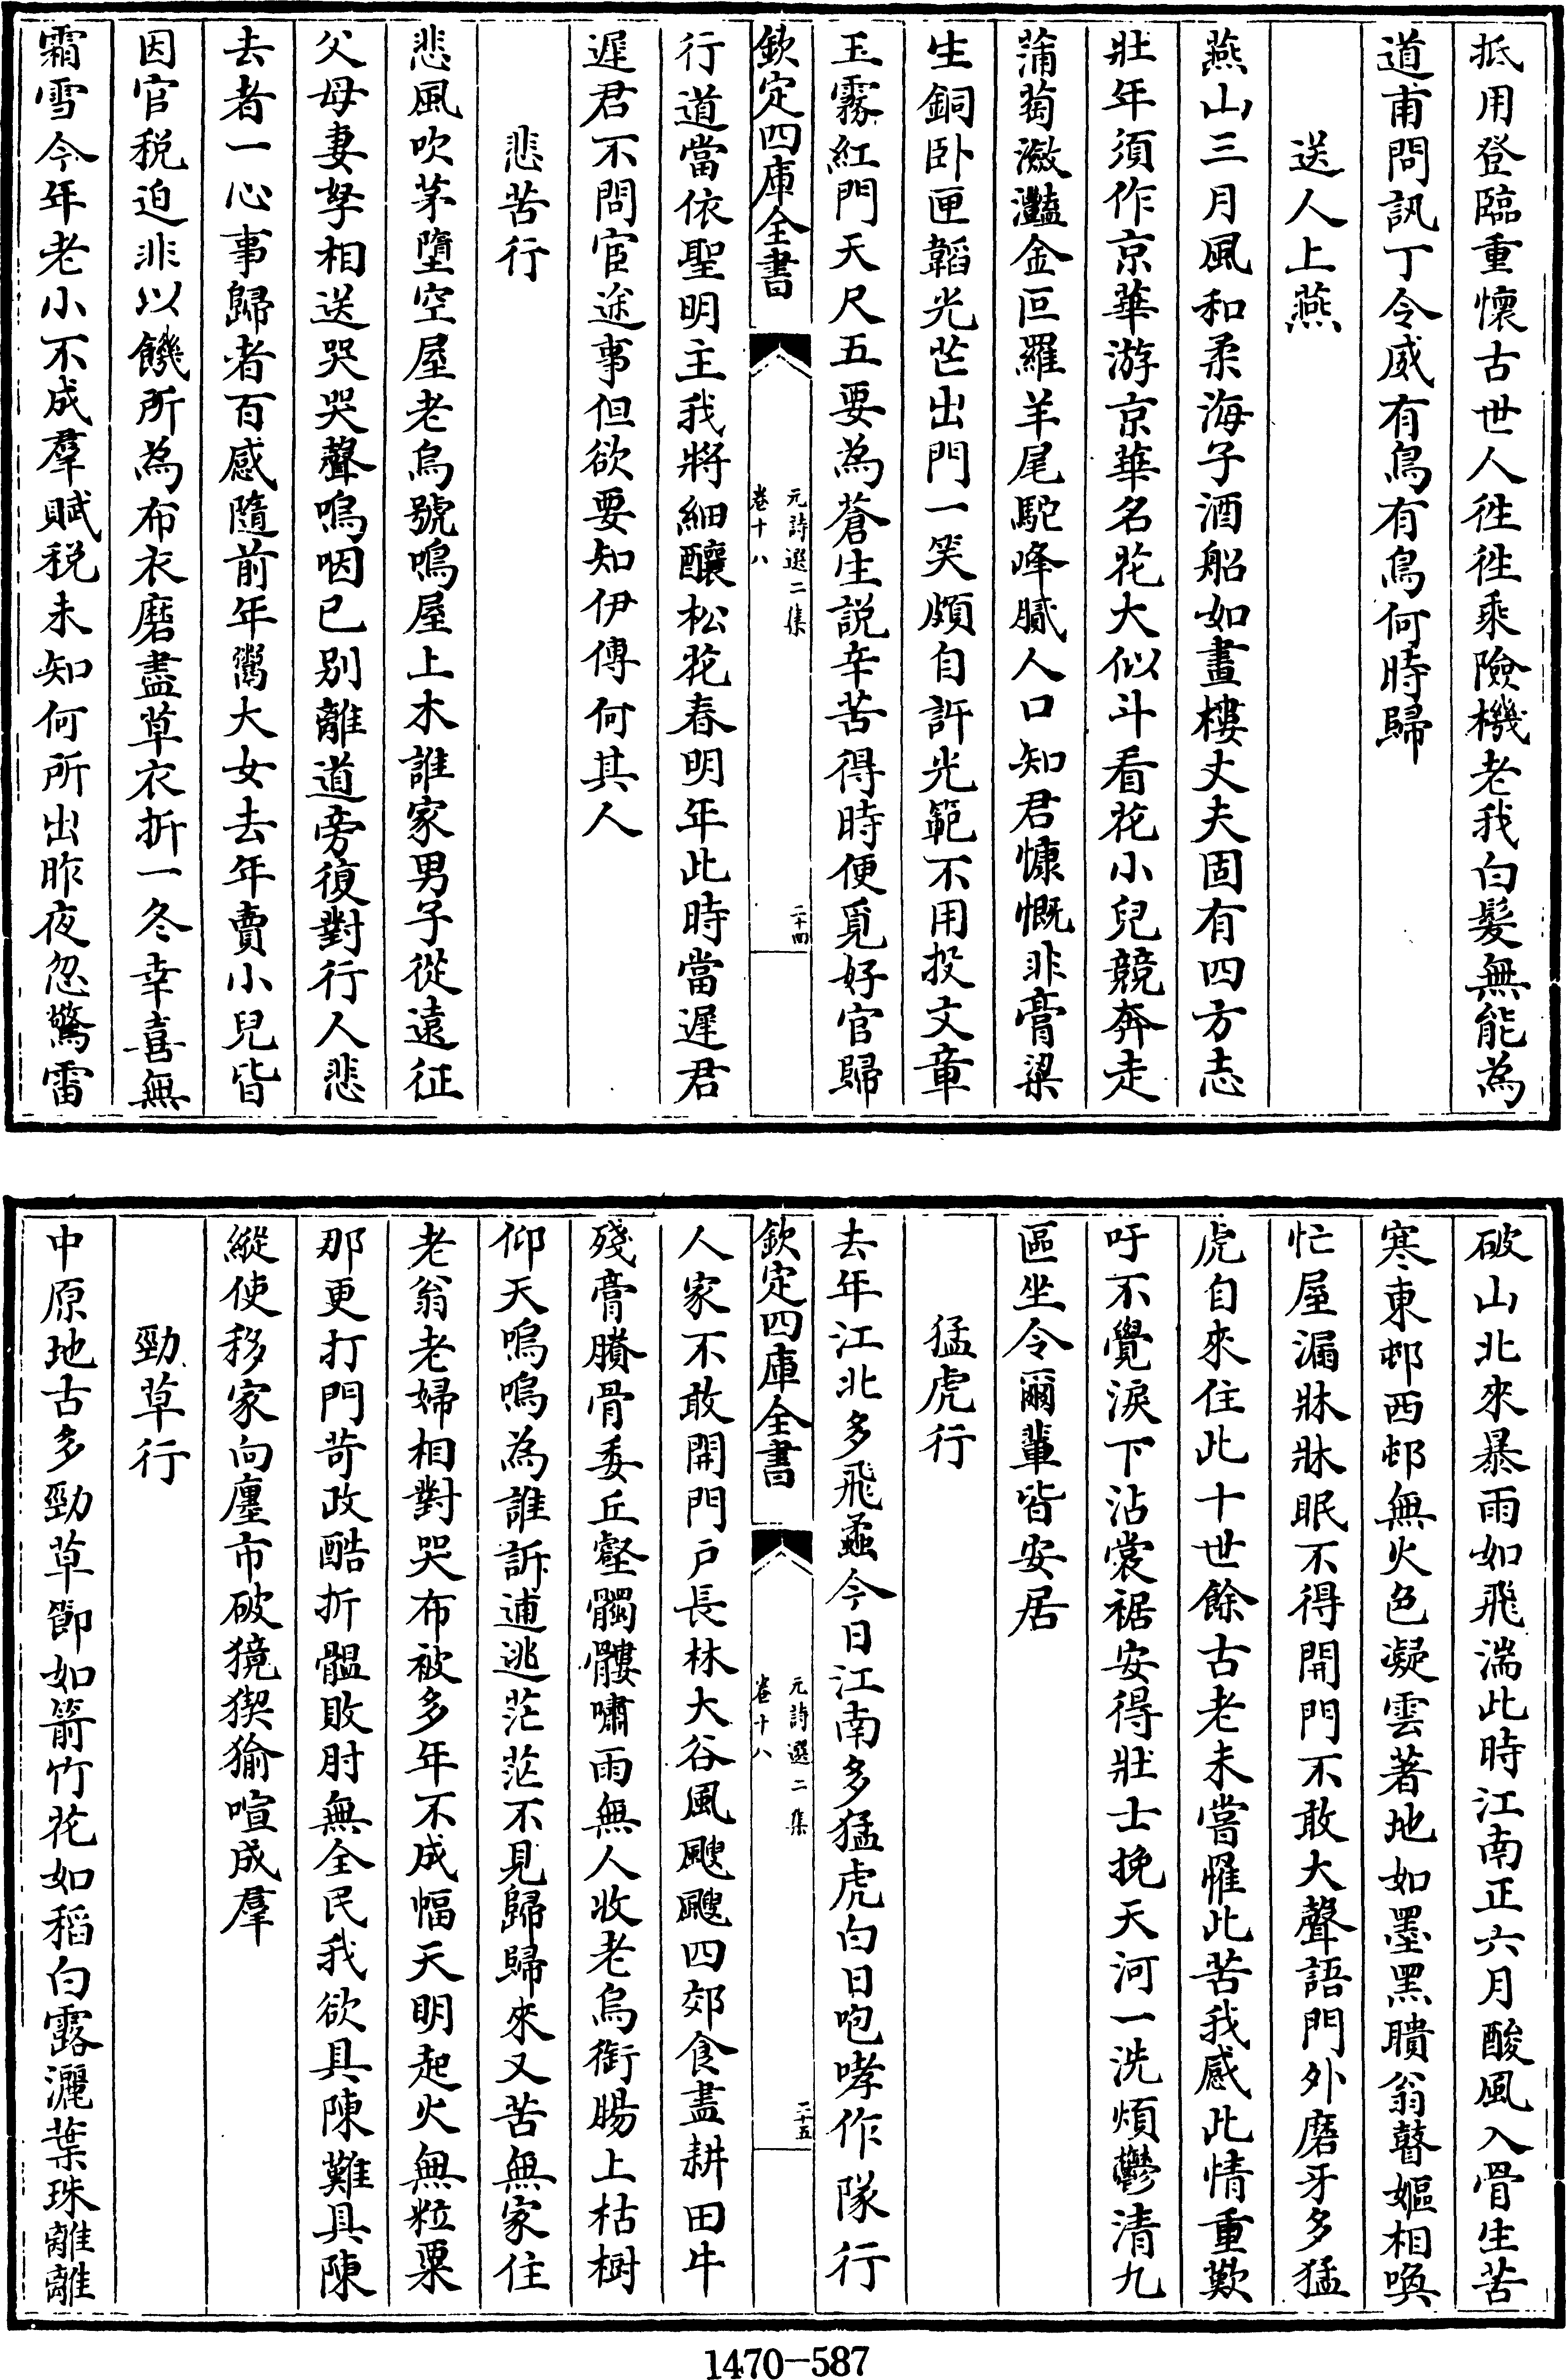 抵用登臨重懷古世人徃徃乘險機老我白髮無能為
道甫問訊丁令威有鳥有鳥何時歸
送人上燕
燕山三月風和柔海子酒船如畫樓丈夫固有四方志
壯年須作京華游京華名花大似斗看花小兒競奔走
蒲萄瀲灩金叵羅羊尾駝峰膩人口知君慷慨非膏粱
生銅卧匣韜光芒出門一笑頗自許光範不用投文章
玉霧紅門天尺五要為蒼生説辛苦得時便覓好官歸
欽定四庫全書
元詩選二集
卷十八
二十四
行道當依聖明主我將細釀松花春明年此時當遲君
遲君不問宦途事但欲要知伊傅何其人
悲苦行
悲風吹茅墮空屋老烏號鳴屋上木誰家男子從遠征
父母妻孥相送哭哭聲嗚咽已别離道旁復對行人悲
去者一心事歸者百感隨前年鬻大女去年賣小兒皆
因官税迫非以饑所為布衣磨盡草衣折一冬幸喜無
霜雪今年老小不成羣賦税未知何所出昨夜忽驚雷
破山北來暴雨如飛湍此時江南正六月酸風入骨生苦
寒東邨西邨無火色凝雲著地如墨黑聵翁瞽嫗相喚
忙屋漏牀牀眠不得開門不敢大聲語門外磨牙多猛
虎自來住此十世餘古老未嘗罹此苦我感此情重歎
吁不覺淚下沾裳裾安得壯士挽天河一洗煩鬱清九
區坐令爾輩皆安居
猛虎行
去年江北多飛蝱今日江南多猛虎白日咆哮作隊行
欽定四庫全書
元詩選二集
卷十八
二十五
人家不敢開門户長林大谷風颼颼四郊食盡耕田牛
殘膏賸骨委丘壑髑髏嘯雨無人收老烏銜腸上枯樹
仰天嗚嗚為誰訴逋逃茫茫不見歸歸來又苦無家住
老翁老婦相對哭布被多年不成幅天明起火無粒粟
那更打門苛政酷折髑敗肘無全民我欲具陳難具陳
縱使移家向廛市破獍猰㺄喧成羣
勁草行
中原地古多勁草節如箭竹花如稻白露灑葉珠離離
1470-587